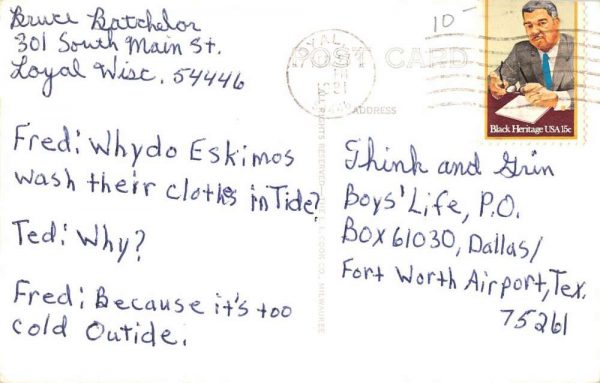 Bruce Batchelor
301 South Main St.
Loyal Wisc. 54446
10-
POST CARD
ADDRESS
Black Heritage USA 15c
Fred: Why do Eskimos
wash their cloths in Tide?
Ted: Why?
Fred: Because it's too
cold Outide.
Think and Grin
Boys' Life, P.O.
BOX 61030, Dallas/
Fort Worth Airport, Tex.
75261